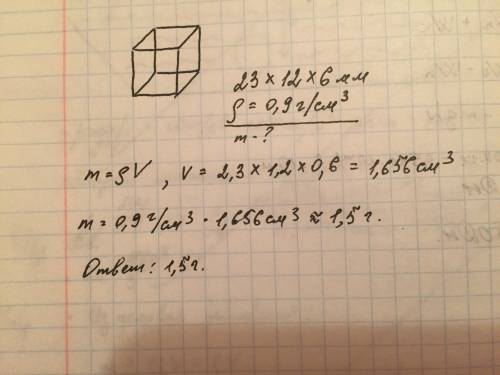 23 × 12 × 6 мм
ρ = 0,9 г/см³
m - ?
m = ρV, V = 2,3 × 1,2 × 0,6 = 1,656 см³
m = 0,9 г/см³ · 1,656 см³ ≈ 1,5 г.
Ответ: 1,5 г.